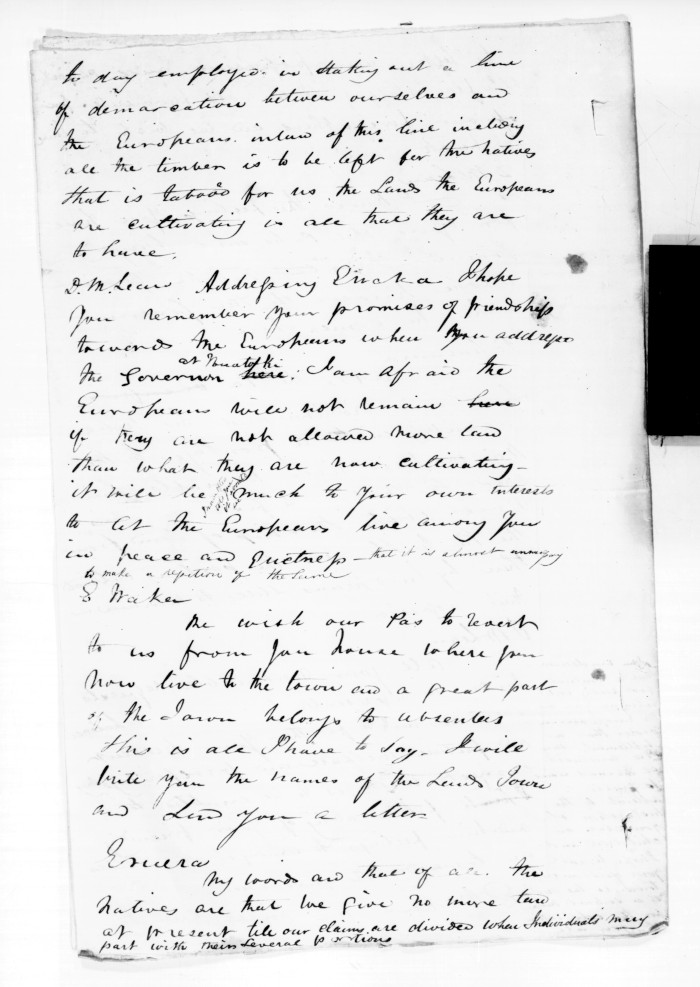 to day employed in staking out a line
of demarcation between ourselves and
the Europeans. inland of this line including
all the timber is to be left for the natives
that is tabood for us the Lands the Europeans
are cultivating is all that they are
to have.
D. McLean Addressing Erueka I hope
you remember your promises of friendship
towards the Europeans when you address
at Waitotki
the Governor here; I am afraid the
Europeans will not remain here
if they are not allowed more land
than what they are now cultivating_
it will be much to your own interests
to let the Europeans live among you
in peace and Quietness _ that it is almost unnecessary
to make a repetition of the same
E Waka
We wish our Pas to revert
to us from your house where you
now live to the town and a great part
of the Town belongs to absentees
this is all I have to say_ I will
write you the names of the Lands Town
and send you a letter
Eruera
My words and that of all the
natives are that we give no more land
at present till our claims are divided when Individuals may
part with their several portions